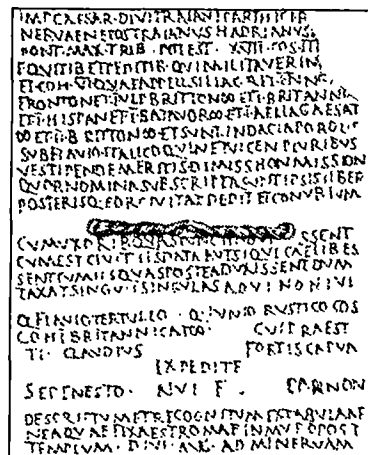 IMP CAESAR·DIVITRAIANIPARTHICIF
NERVAENEPOSTRAIANVSHADRIANVS
PONT·MAX·TRIB·POTEST·XVIII·COS·III
EQVITIBETPEDITIB·QVIMILITAVERIN
ETCOH·VIQVAEAPPELSILIAC·R·ETI
FRONTONETIVLPBRITTON∞ETI·BRITANNI
ETI·HISPANETI·BATAVOR∞ETI·AELIAGAESAT
∞ETII·BRITTON∞ETSVNTINDACIAPOROLIS
SVBFLAVIOITALICOQVINETVICENPLVRIBVS
VESTIPENDEMERITISDIMISSHONMISSION
QVORNOMINASVBSCRIPTASVNTIPSISLIBER
POSTERISQ·EORCIVITATDEDITETCONVBIVM
CVMVXORIBQVAS SSENT
CVMESTCIVITIISDATAAVTSIQVICAELIBES
SENTCVMIISQVASPOSTEADVXISSENTDVM
TAXATSINGVLISINGVLASADVI NONIVL
Q·FLAVIOTERTVLLO · Q·IVNIO RVSTICO COS
COHIBRITANNICAE∞· CVIPRAEST
TI· CLAVDIVS FORTISCAPVA
EXPEDITE
SEPENESTO· RIVI F. PANNON
DESCRIPTVMETRECOGNITVMEXTABVLAAE
NEAQVAEFIXAESTROMAEINMVROPOST
TEMPLVM·DIVI·AVG·AD MINERVAM